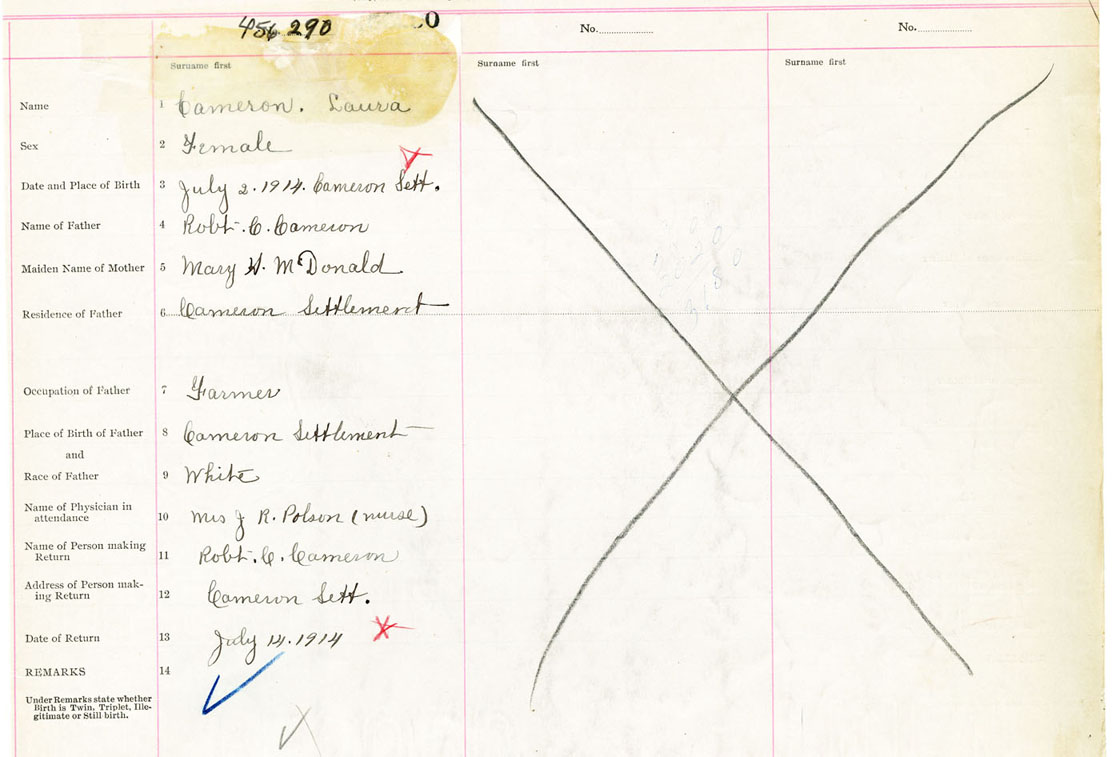 456 290
No.
No.
Surname first
Surname first
Surname first
Name 1 Cameron. Laura
Sex 2 Female
Date and Place of Birth 3 July 2. 1914. Cameron Sett.
Name of Father 4 Robt. C. Cameron
Maiden Name of Mother 5 Mary H. McDonald
Residence of Father 6 Cameron Settlement
Occupation of Father 7 Farmer
Place of Birth of Father 8 Cameron Settlement
and
Race of Father 9 White
Name of Physician in
attendance 10 Mrs J R. Polson (nurse)
Name of Person making
Return 11 Robt. C. Cameron
Address of Person mak-
ing Return 12 Cameron Sett.
Date of Return 13 July 14. 1914
REMARKS 14
Under Remarks state whether
Birth is Twin, Triplet, Ille-
gitimate or Still birth.